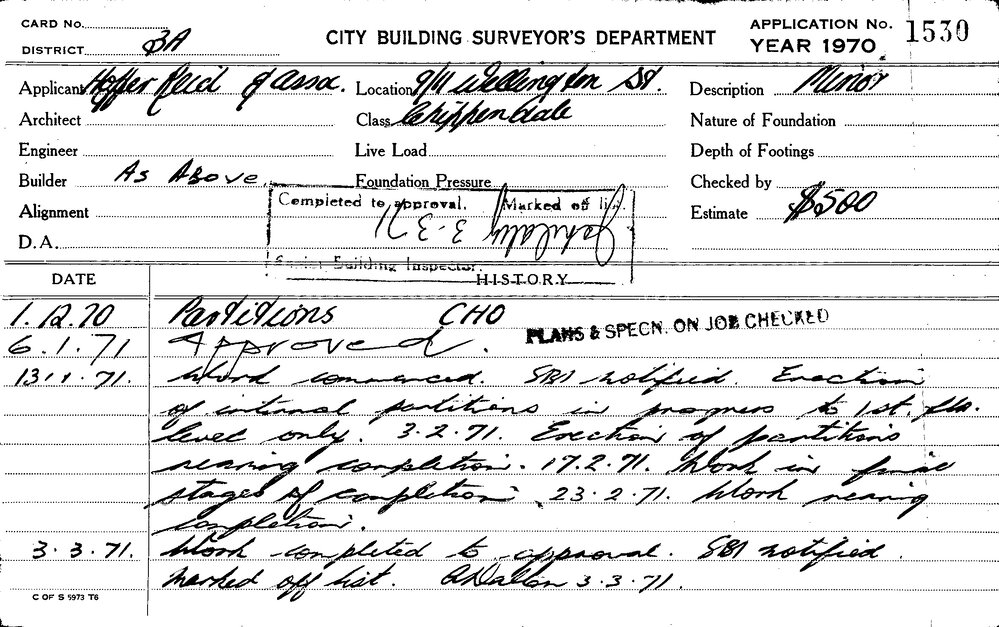 CARD No.
DISTRICT 3A
CITY BUILDING SURVEYOR'S DEPARTMENT
APPLICATION No. 1530
YEAR 1970
Applicant Hoffer Reid & Assoc. Location 9/11 Wellington St. Description Minor
Architect Class Chippendale Nature of Foundation
Engineer Live Load Depth of Footings
Builder As Above. Foundation Pressure Checked by
Completed to approval. Marked off list.
Alignment 3-3-71 Estimate $500
D.A.
Senior Building Inspector.
DATE HISTORY
1.12.70 Partitions CHO PLANS & SPECN. ON JOB CHECKED
6.1.71 Approved.
13.1.71. Work commenced. SBI notified. Erection
of internal partitions in progress to 1st. flr.
level only. 3.2.71. Erection of partitions
nearing completion. 17.2.71. Work in final
stages of completion 23.2.71. Work nearing
completion.
3.3.71. Work completed to approval. SBI notified.
Marked off list. 3.3.71.
C OF S 5973 T6